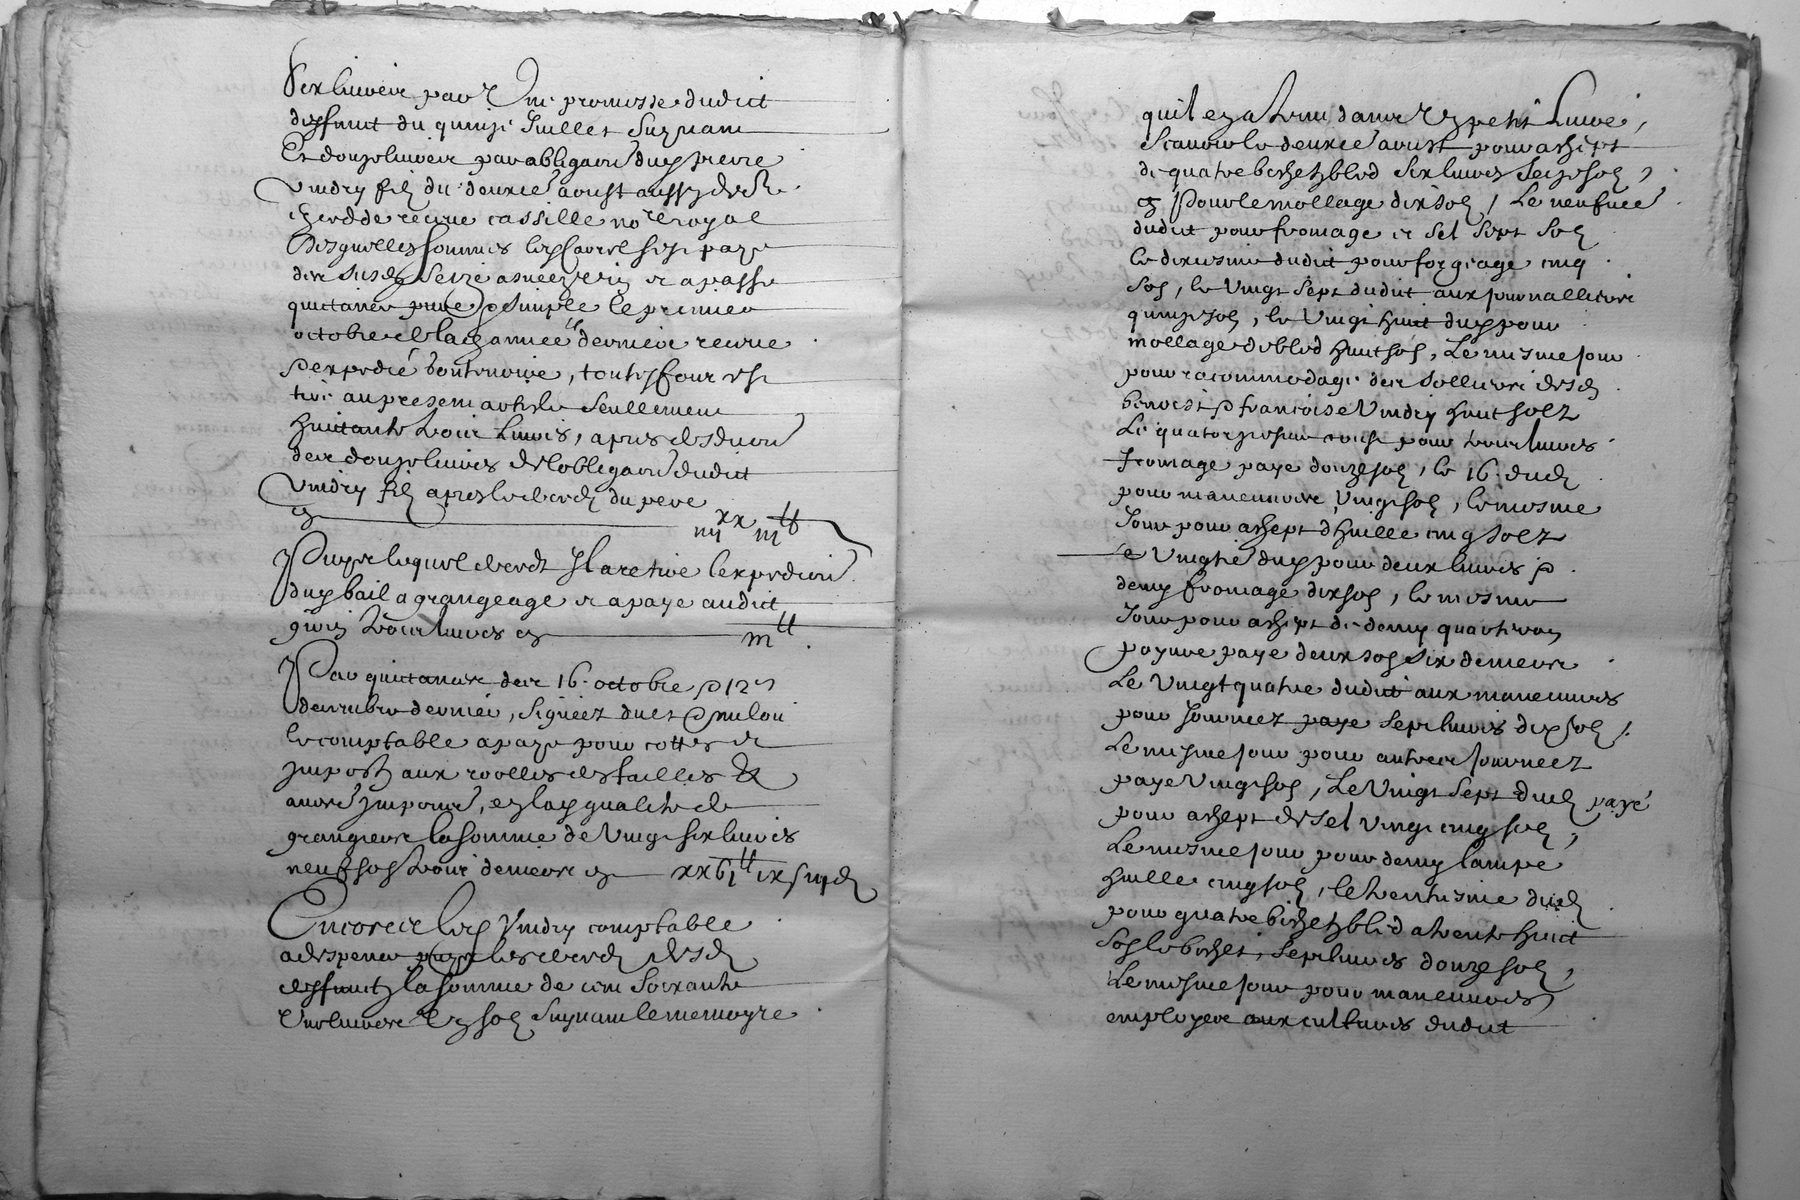 Six livres par une promesse dudict
deffunct du quinze Juillet suyvant
Et douze livres par obligaon dud pierre
Vindry filz du deuxie aoust aussy
receue Cassille no.re royal
Desquelles sommes led a payé
seize et a passé
quictance le premier
octobre de lad année derniere receue
p expedié Bontenoire, toutesfois
au present article seullement
huictante trois livres, apres
des douze livres de lobligaon dudict
Vindry filz apres le decedz du pere
cy iiij xx iij tt
Puys lequel decedz Il a retiré l'expedition
dud bail a grangeage et a payé audict
trois livres cy iij tt
Par quictances des 16. octobre & 12e
decembre dernier, signéez
le comptable a payé pour cottes et
Impostz aux roolles des tailles &
autres Impositions, en lad qualité de
grangiers la somme de Vingt six livres
neuf solz trois deniers cy xxvi tt ix s iij d
Encores led Vindry comptable
a despencé puys les decedz desd
deffunctz la somme de cent soixante
une livres ung sol suyvant le memoyre
quil en a tenu dans ung petit livre,
Scavoir le deuxie aoust pour achept
de quatre bichetz bled six livres seize solz,
cy Pour le mollage dix solz, Le neufvie
dudict pour fromage et sel sept solz
le dixiesme dudict pour forgeage cinq
solz, le Vingt sept dudict aux journalliers
quinze solz, le Vingt huict dud pour
mollage de bled huict solz, Le mesme jour
pour racommodage des solliers desd
benoist & françoise Vindry huict solz
Le quatorziesme pour trois livres
fromage payé douze solz, le 16. dud
pour maneuvre Vingt solz, le mesme
Jour pour achept d'huille cinq solz
le Vingtie dud pour deux livres &
demy fromage dix solz, le mesme
Jour pour achept de demy quarteron
poyvre payé deux solz six deniers
Le Vingt quatre dudict aux maneuvres
pour journeez payé sept livres dix solz,
Le mesme jour pour autres journeez
payé Vingt solz, Le Vingt sept dud payé
pour achept de sel Vingt cinq solz,
Le mesme jour pour demy lampe
huille cinq solz, le trentiesme dud
pour quatre bichetz bled a trente huict
solz le bichet, sept livres douze solz,
Le mesme jour pour maneuvres
employez aux cultures dudict